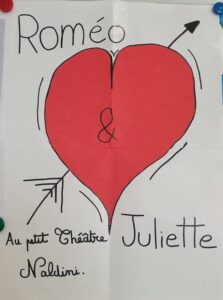 Roméo
&
Juliette
Au petit Théâtre
Naldini.